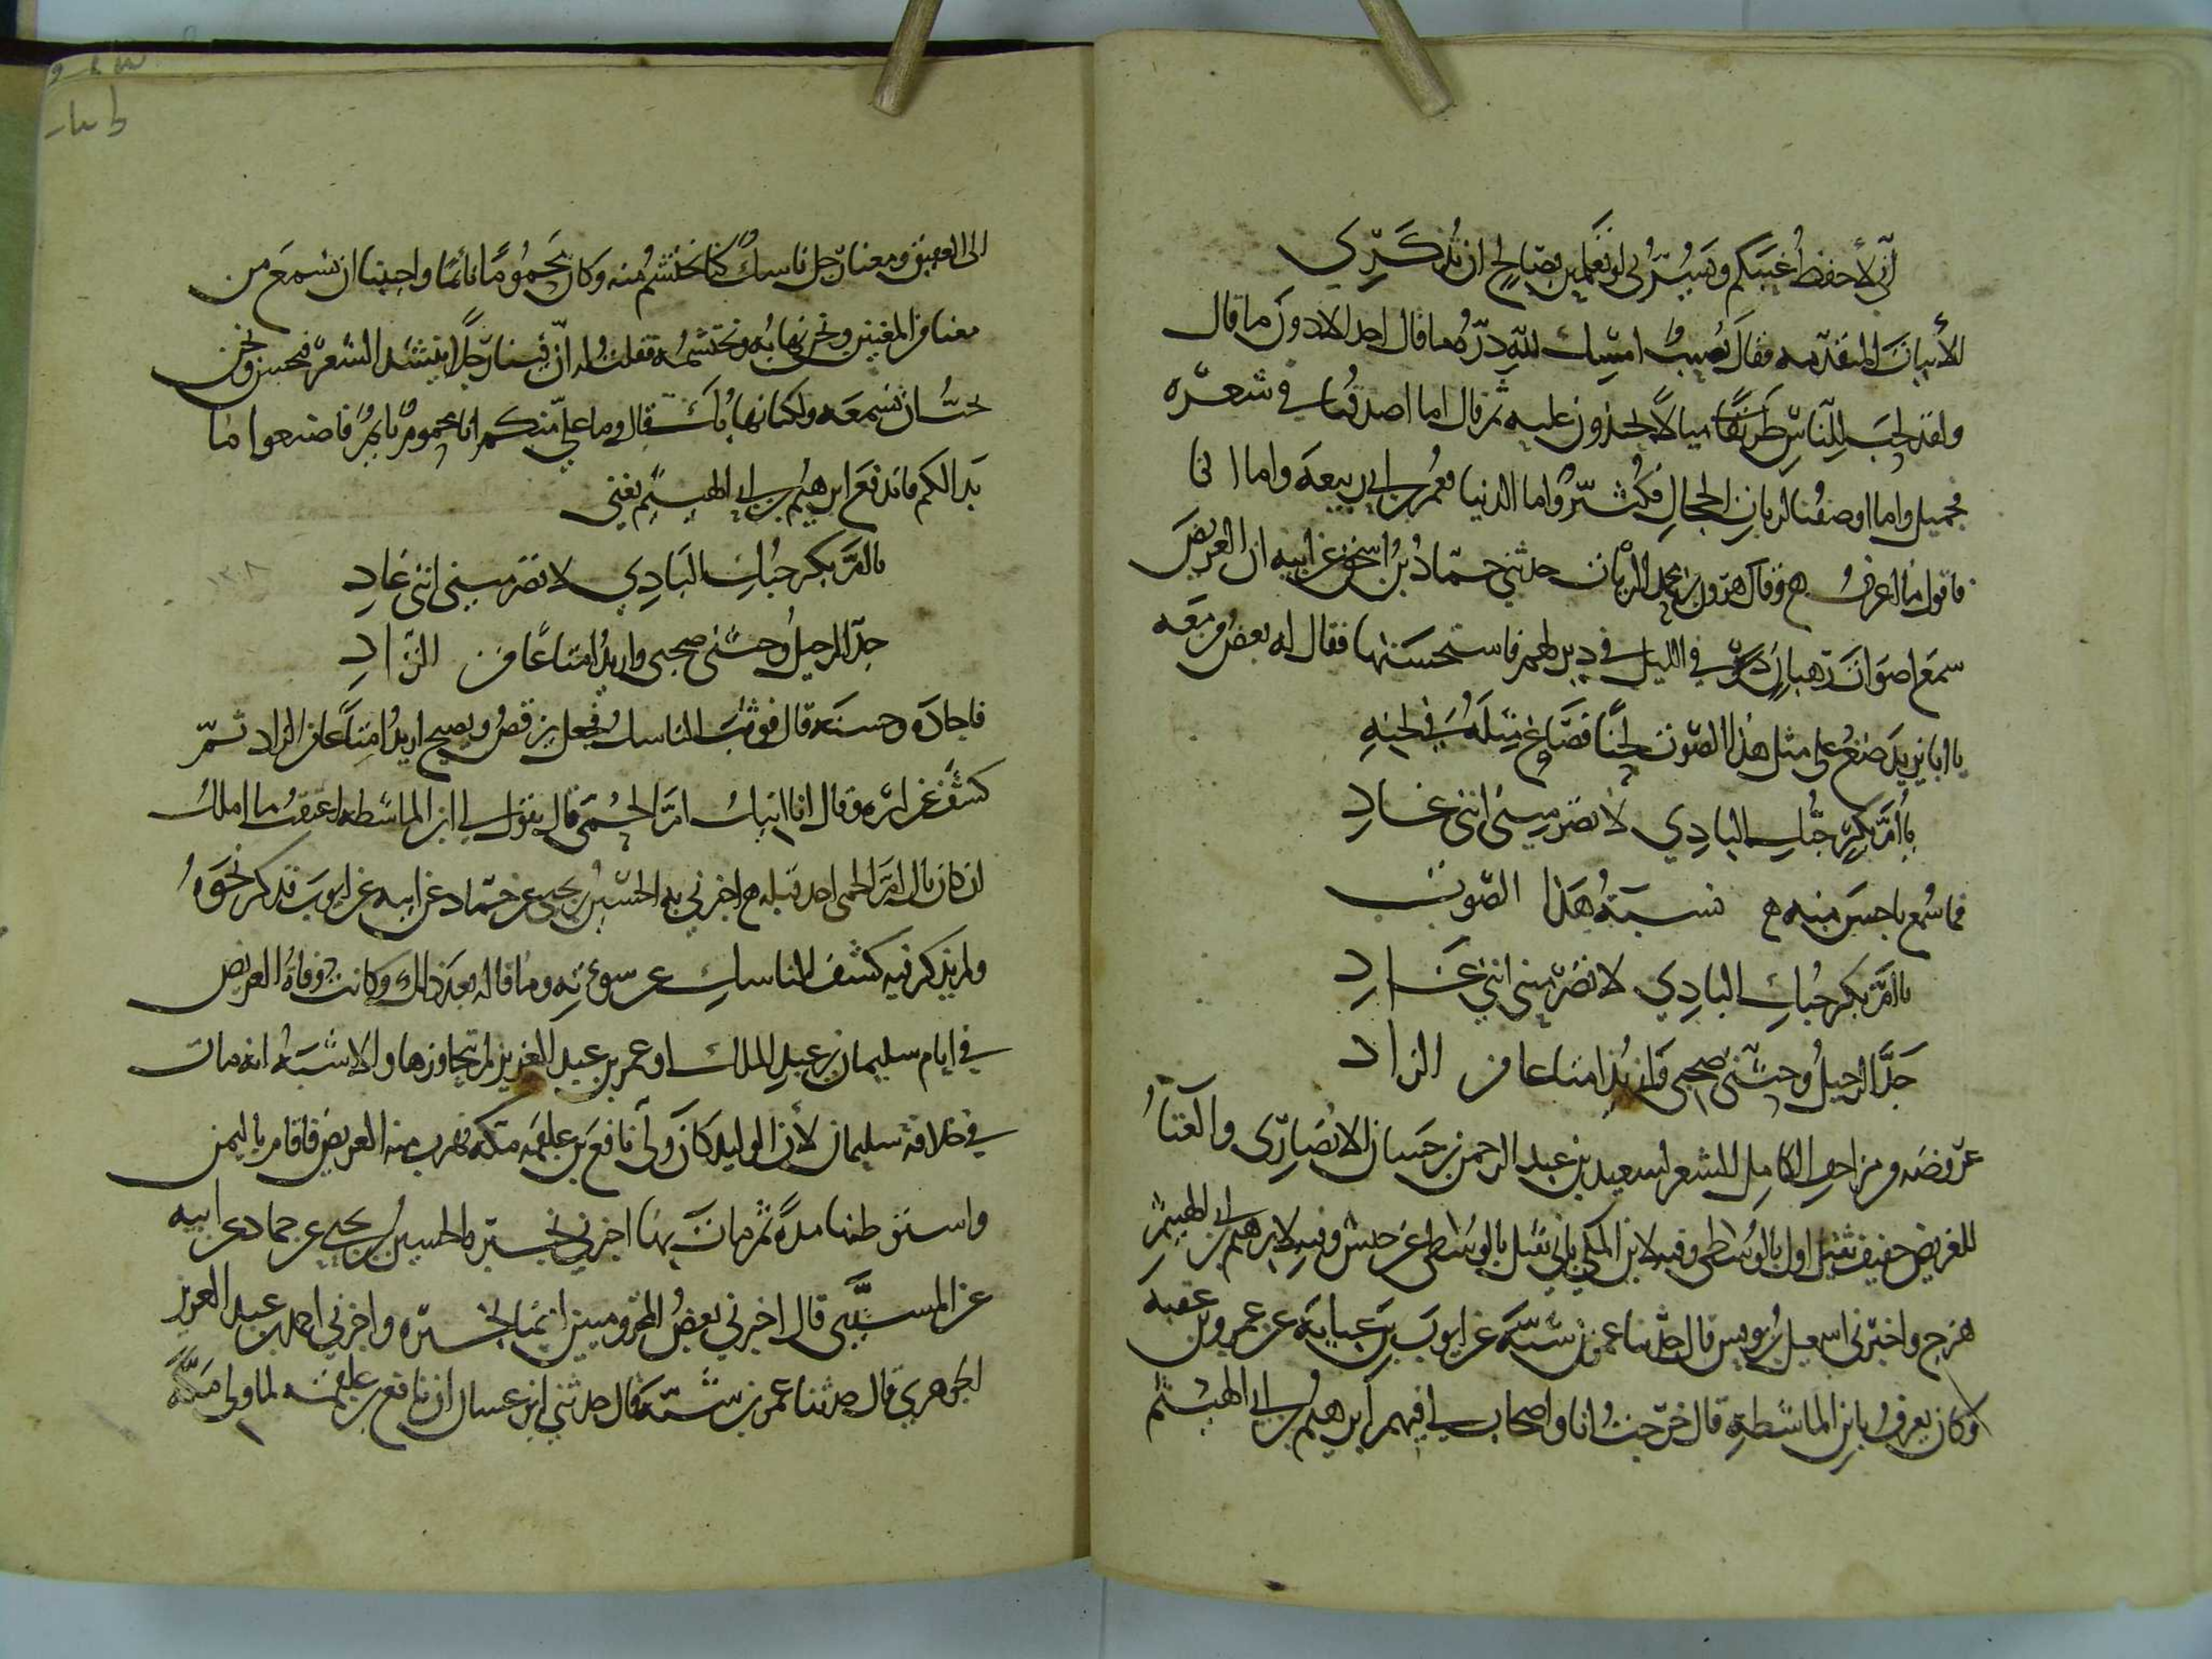 اني لأحفظ غيبكم ويسرني لو تعلمين بصالح ان تذكري
الأبيات المتقدمه فقال نصيب امسك لله درك ما قال احد الا دون ما قال
ولقد نحب للناس طريقا مثالا يحذون عليه ثم قال اما اصدقنا في شعره
فجميل واما اوصفنا لربات الحجال فكثير واما اكذبنا فعمر بن ابي ربيعة واما انا
فاقول ما اعرف ه وقال هرون بن محمد الزيات حدثني حماد بن اسحق عن ابيه ان الغريض
سمع اصوات رهبان في الليل في دير لهم فاستحسنها فقال له بعض من معه
يا ابا يزيد صنع على مثل هذا الصوت لحنا فصاغ مثله في لحنه
يا ام بكر حبك البادي لا تصرميني انني غاد
فما سمع باحسن منه ه نسبة هذا الصوت
يا ام بكر حبك البادي لا تصرميني انني غاد
جد الرحيل وحثني صحبي واريد امتاعا من الزاد
عروضه من مزاحف الكامل الشعر لسعيد بن عبد الرحمن بن حسان الانصاري والغناء
للغريض خفيف ثقيل اول بالوسطى وفيه لابن المكي ثاني ثقيل بالوسطى عن حبش وفيه لابرهيم بن ابي الهيثم
هزج واخبرني اسمعيل بن يونس قال حدثنا عمر بن شبة عن ايوب بن عباية عن عمرو بن عقبة
وكان يعرف بابن الماشطة قال خرجت انا واصحاب لي فيهم ابرهيم بن ابي الهيثم
الى العقيق ومعنا رجل ناسك كنا نحتشم منه وكان محموما نائما واحببنا ان نسمع من
معنا من المغنين ونحن نهابه ونحتشمه فقلت له ان فينا رجلا ينشد الشعر فيحسن ونحن
نحب ان نسمعه ولكنا نهابك قال وما علي منكم انا محموم نايم فاصنعوا ما
بدا لكم فاندفع ابرهيم بن ابي الهيثم يغني
يا ام بكر حبك البادي لا تصرميني انني غاد
جد الرحيل وحثني صحبي واريد امتاعا من الزاد
فاجاده وحسنه قال فوثب الناسك فجعل يرقص ويصيح اريد امتاعا من الزاد ثم
كشف عن ايره وقال انا انيك ام الحمى قال يقول لي ابن الماشطة اعتقت ما املك
ان كان ناك ام الحمى احد قبله ه اخبرني به الحسين بن يحيى عن حماد عن ابيه عن ايوب فذكر نحوه
ولم يذكر فيه كشف الناسك عن سوءته وما قاله بعد ذلك وكانت وفاة الغريض
في ايام سليمان بن عبد الملك او عمر بن عبد العزيز لم يتجاوزها والاشبه انه مات
في خلافة سليمان لأن الوليد كان ولى نافع بن علقمة مكة فهرب منه الغريض فاقام باليمن
واستوطنها مدة ثم مات بها اخبرني بخبره الحسين بن يحيى عن حماد عن ابيه
عن المسيبي قال اخبرني بعض المخزوميين ايضا بخبره واخبرني احمد بن عبد العزيز
الجوهري قال حدثنا عمر بن شبة قال حدثني ابو غسان ان نافع بن علقمة لما ولي مكة